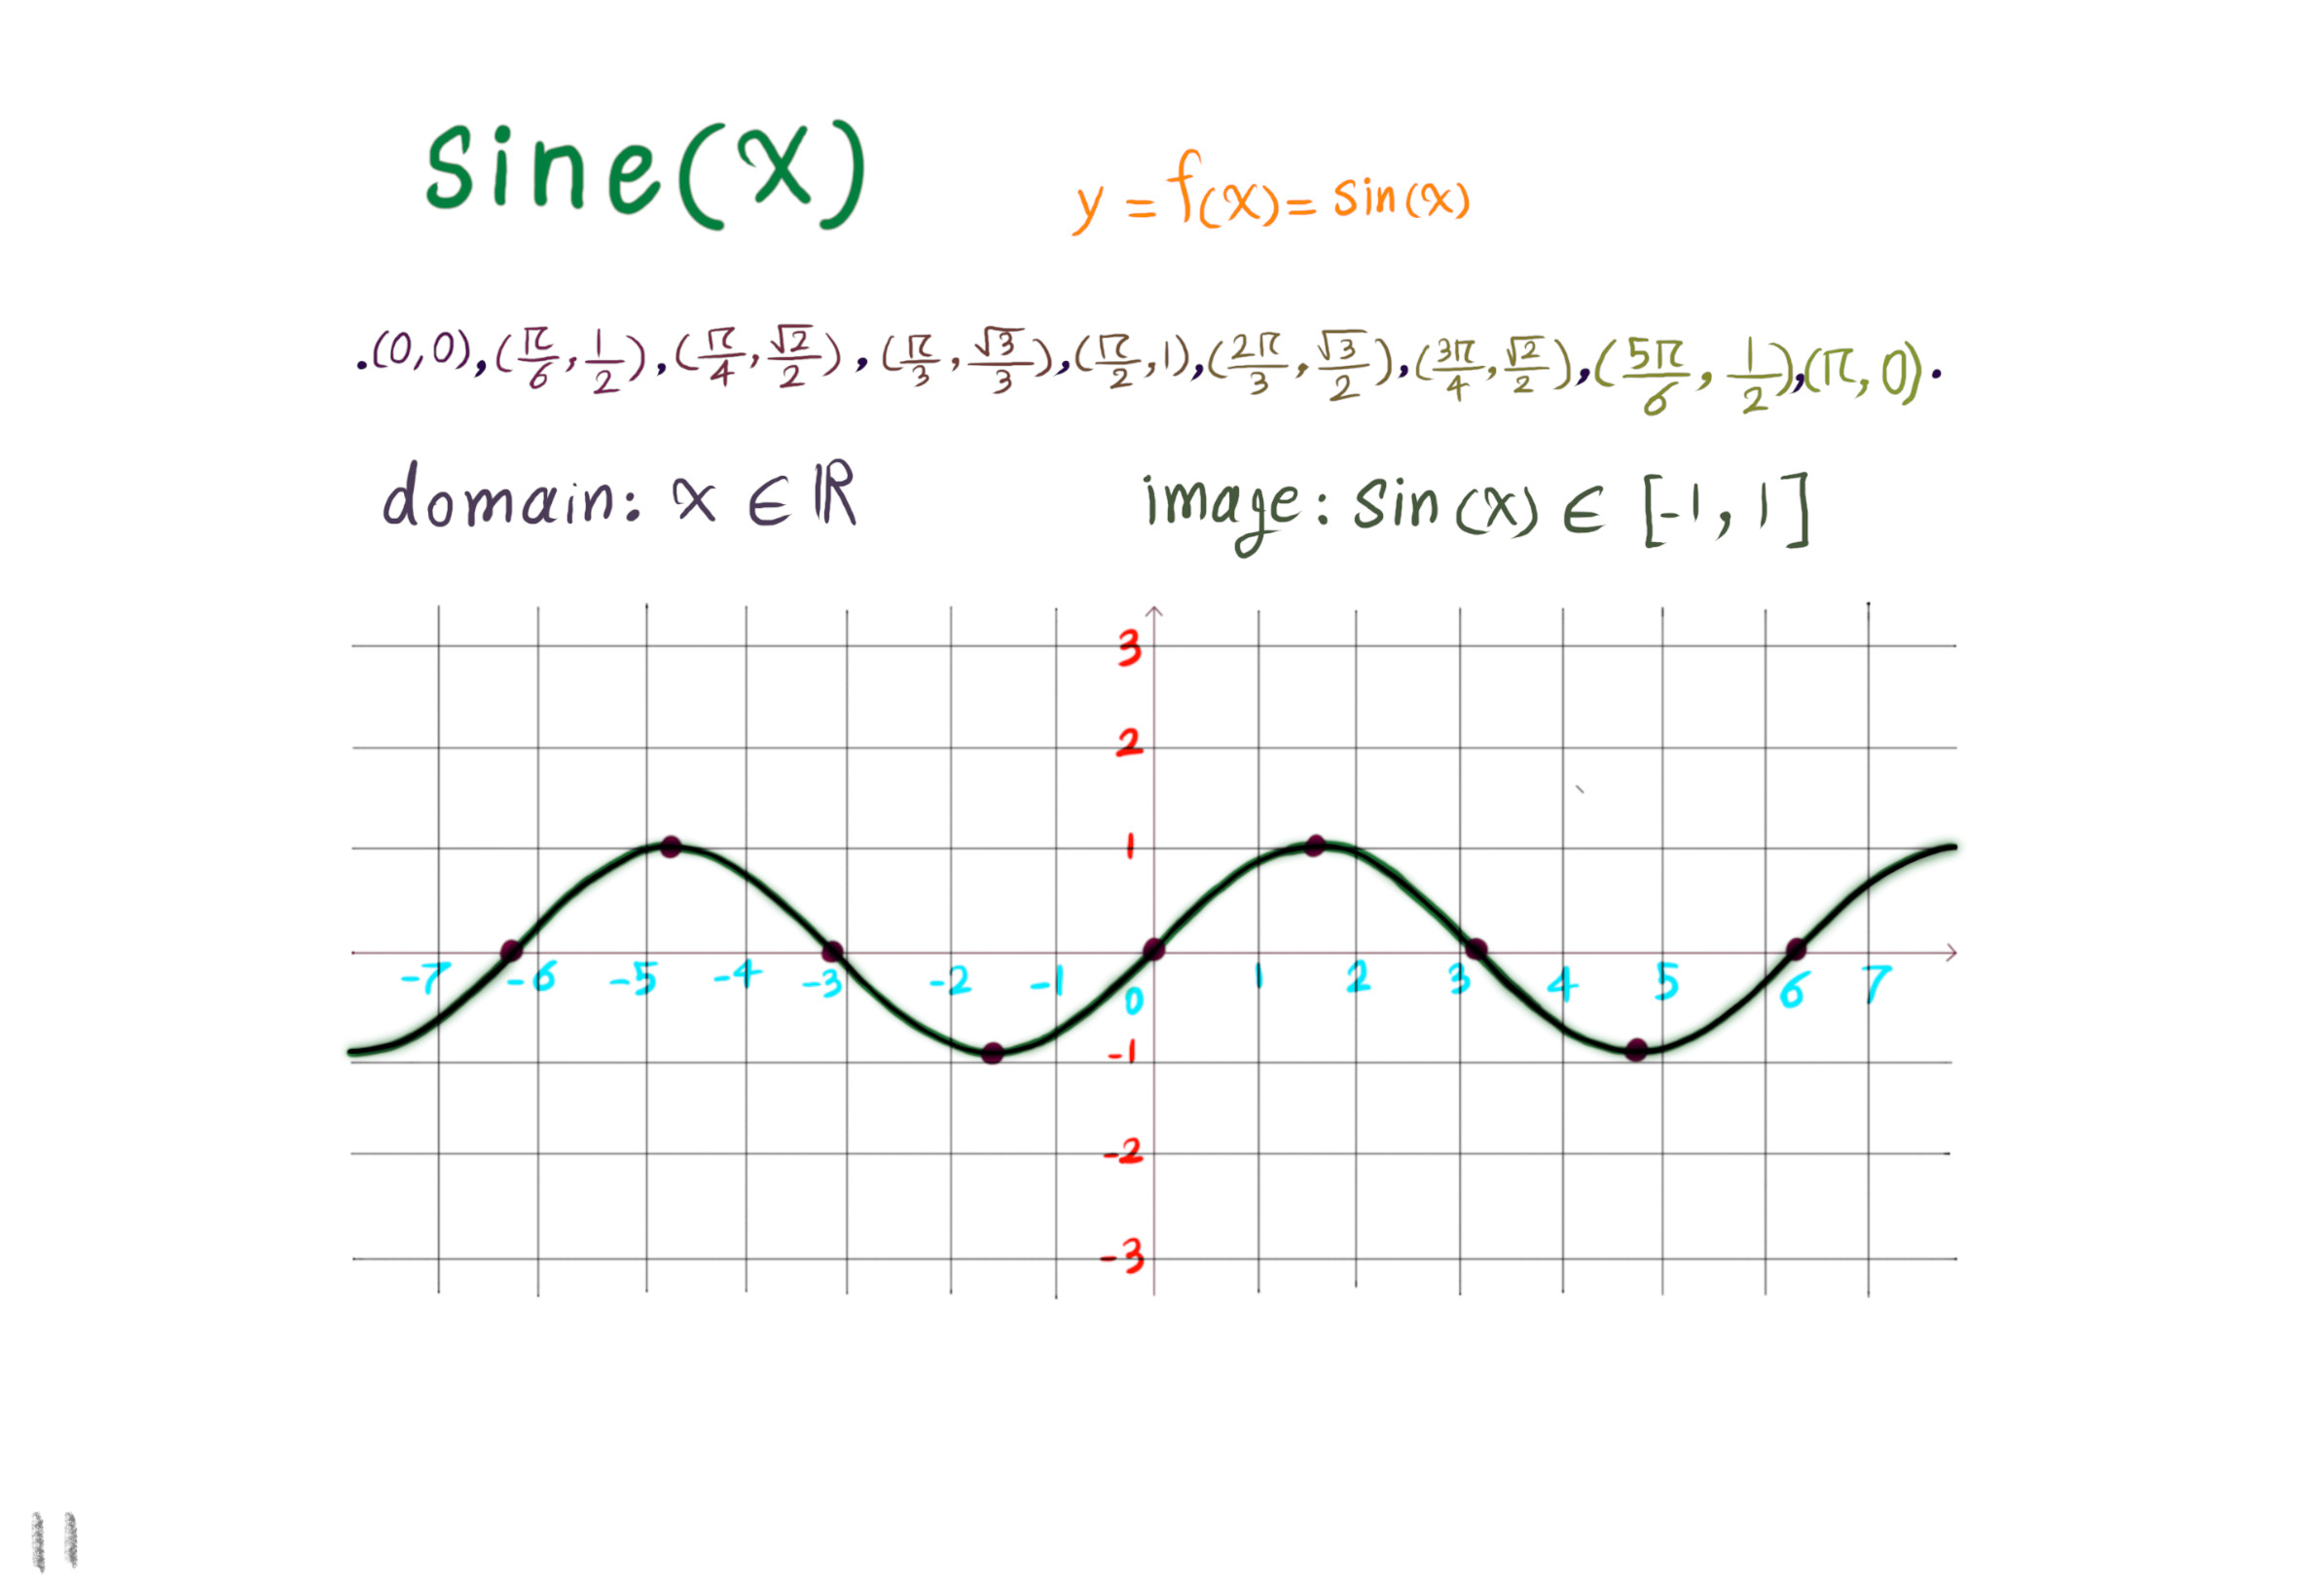 Sine(x)
y = f(x) = sin(x)
.(0,0), (π/6, 1/2), (π/4, √2/2), (π/3, √3/3), (π/2, 1), (2π/3, √3/2), (3π/4, √2/2), (5π/6, 1/2), (π, 0).
domain: x ∈ ℝ
image: sin(x) ∈ [-1, 1]
3
2
1
-7 -6 -5 -4 -3 -2 -1 0 1 2 3 4 5 6 7
-1
-2
-3
11